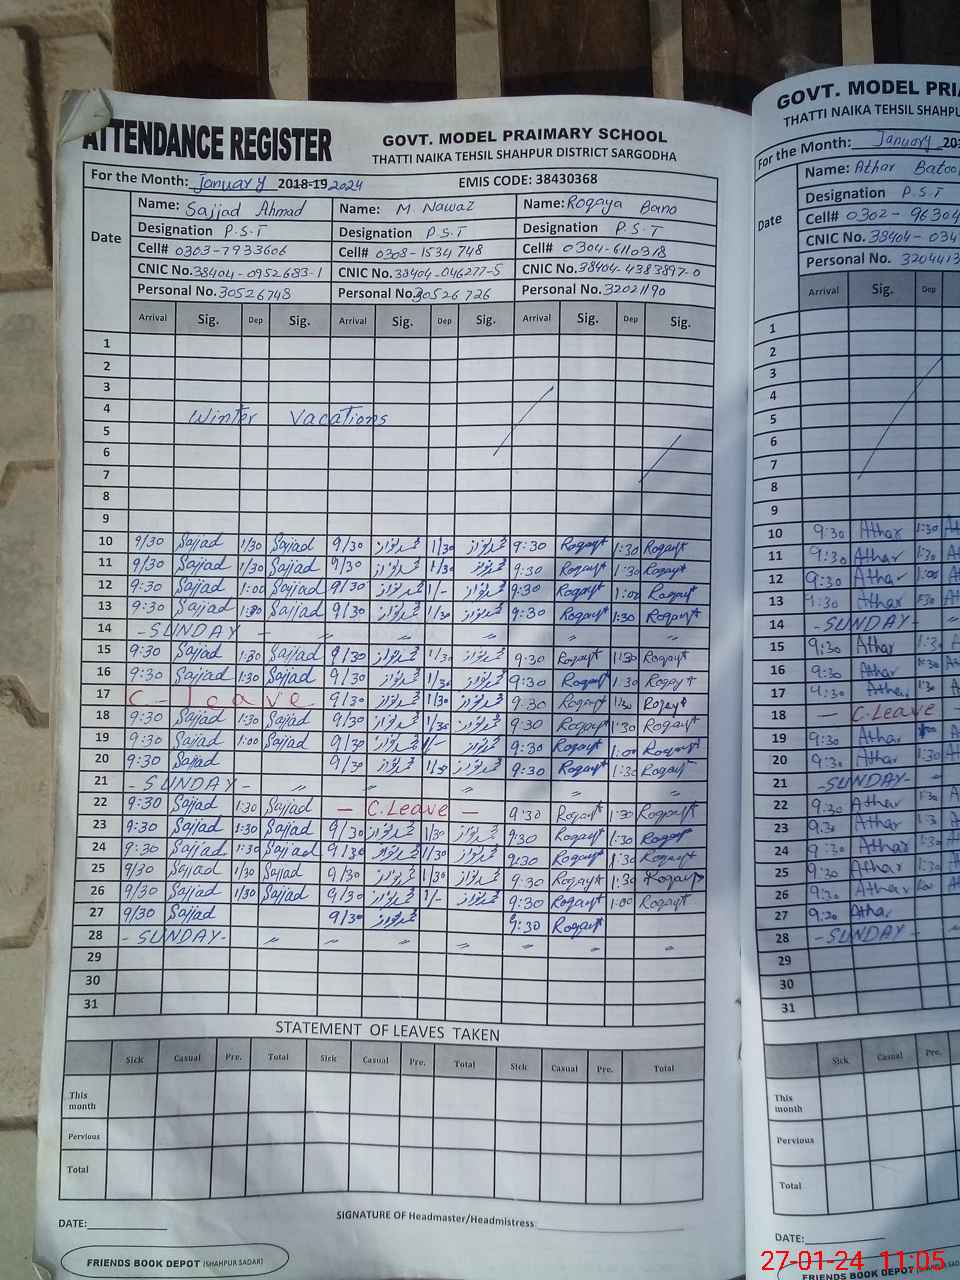 ATTENDANCE REGISTER
GOVT. MODEL PRAIMARY SCHOOL
THATTI NAIKA TEHSIL SHAHPUR DISTRICT SARGODHA
For the Month: January 2018-19 2024 EMIS CODE: 38430368
Date Name: Sajjad Ahmad Name: M. Nawaz Name: Roqaya Bano
Designation P.S.T Designation P.S.T Designation P.S.T
Cell# 0303-7933606 Cell# 0308-1534748 Cell# 0304-6110318
CNIC No. 38404-0952683-1 CNIC No. 38404-046277-5 CNIC No. 38404-4383897-0
Personal No. 30526748 Personal No. 30526726 Personal No. 32021190
Arrival Sig. Dep Sig. Arrival Sig. Dep Sig. Arrival Sig. Dep Sig.
1
2
3
4 Winter Vacations
5
6
7
8
9
10 9/30 Sajjad 1/30 Sajjad 9/30 محمد نواز 1/30 محمد نواز 9:30 Roqayt 1:30 Roqayt
11 9/30 Sajjad 1/30 Sajjad 9/30 محمد نواز 1/30 محمد نواز 9:30 Roqayt 1:30 Roqayt
12 9:30 Sajjad 1:00 Sajjad 9/30 محمد نواز 1/- محمد نواز 9:30 Roqayt 1:00 Roqayt
13 9:30 Sajjad 1:30 Sajjad 9/30 محمد نواز 1/30 محمد نواز 9:30 Roqayt 1:30 Roqayt
14 - SUNDAY - " " " " "
15 9:30 Sajjad 1:30 Sajjad 9/30 محمد نواز 1/30 محمد نواز 9:30 Roqayt 1:30 Roqayt
16 9:30 Sajjad 1:30 Sajjad 9/30 محمد نواز 1/30 محمد نواز 9:30 Roqayt 1:30 Roqayt
17 C - leave 9/30 محمد نواز 1/30 محمد نواز 9:30 Roqayt 1:30 Roqayt
18 9:30 Sajjad 1:30 Sajjad 9/30 محمد نواز 1/30 محمد نواز 9:30 Roqayt 1:30 Roqayt
19 9:30 Sajjad 1:00 Sajjad 9/30 محمد نواز 1/- محمد نواز 9:30 Roqayt 1:00 Roqayt
20 9:30 Sajjad 9/30 محمد نواز 1/30 محمد نواز 9:30 Roqayt 1:30 Roqayt
21 - SUNDAY - " " " " "
22 9:30 Sajjad 1:30 Sajjad - C.Leave - 9:30 Roqayt 1:30 Roqayt
23 9:30 Sajjad 1:30 Sajjad 9/30 محمد نواز 1/30 محمد نواز 9:30 Roqayt 1:30 Roqayt
24 9:30 Sajjad 1:30 Sajjad 9/30 محمد نواز 1/30 محمد نواز 9:30 Roqayt 1:30 Roqayt
25 9/30 Sajjad 1/30 Sajjad 9/30 محمد نواز 1/30 محمد نواز 9:30 Roqayt 1:30 Roqayt
26 9/30 Sajjad 1/30 Sajjad 9/30 محمد نواز 1/- محمد نواز 9:30 Roqayt 1:00 Roqayt
27 9/30 Sajjad 9/30 محمد نواز 9:30 Roqayt
28 - SUNDAY - " " " " " "
29
30
31
STATEMENT OF LEAVES TAKEN
Sick Casual Pre. Total Sick Casual Pre. Total Sick Casual Pre. Total
This month
Pervious
Total
DATE: SIGNATURE OF Headmaster/Headmistress:
FRIENDS BOOK DEPOT (SHAHPUR SADAR)
GOVT. MODEL
THATTI NAIKA TEHSIL
For the Month: January
Date Name: Athar Batool
Designation P.S.T
Cell# 0302-
CNIC No. 38404-
Personal No.
Arrival Sig. Dep
1
2
3
4
5
6
7
8
9
10 9:30 Athar 1:30
11 9:30 Athar 1:30
12 9:30 Athar 1:00
13 9:30 Athar 1:30
14 - SUNDAY - "
15 9:30 Athar 1:30
16 9:30 Athar 1:30
17 9:30 Athar 1:30
18 - C.Leave -
19 9:30 Athar
20 9:30 Athar 1:30
21 - SUNDAY - "
22 9:30 Athar 1:30
23 9:30 Athar 1:30
24 9:30 Athar 1:30
25 9:30 Athar 1:30
26 9:30 Athar 1:00
27 9:30 Athar
28 - SUNDAY - "
29
30
31
Sick Casual Pre.
This month
Pervious
Total
DATE:
FRIENDS BOOK DEPOT
27-01-24 11:05